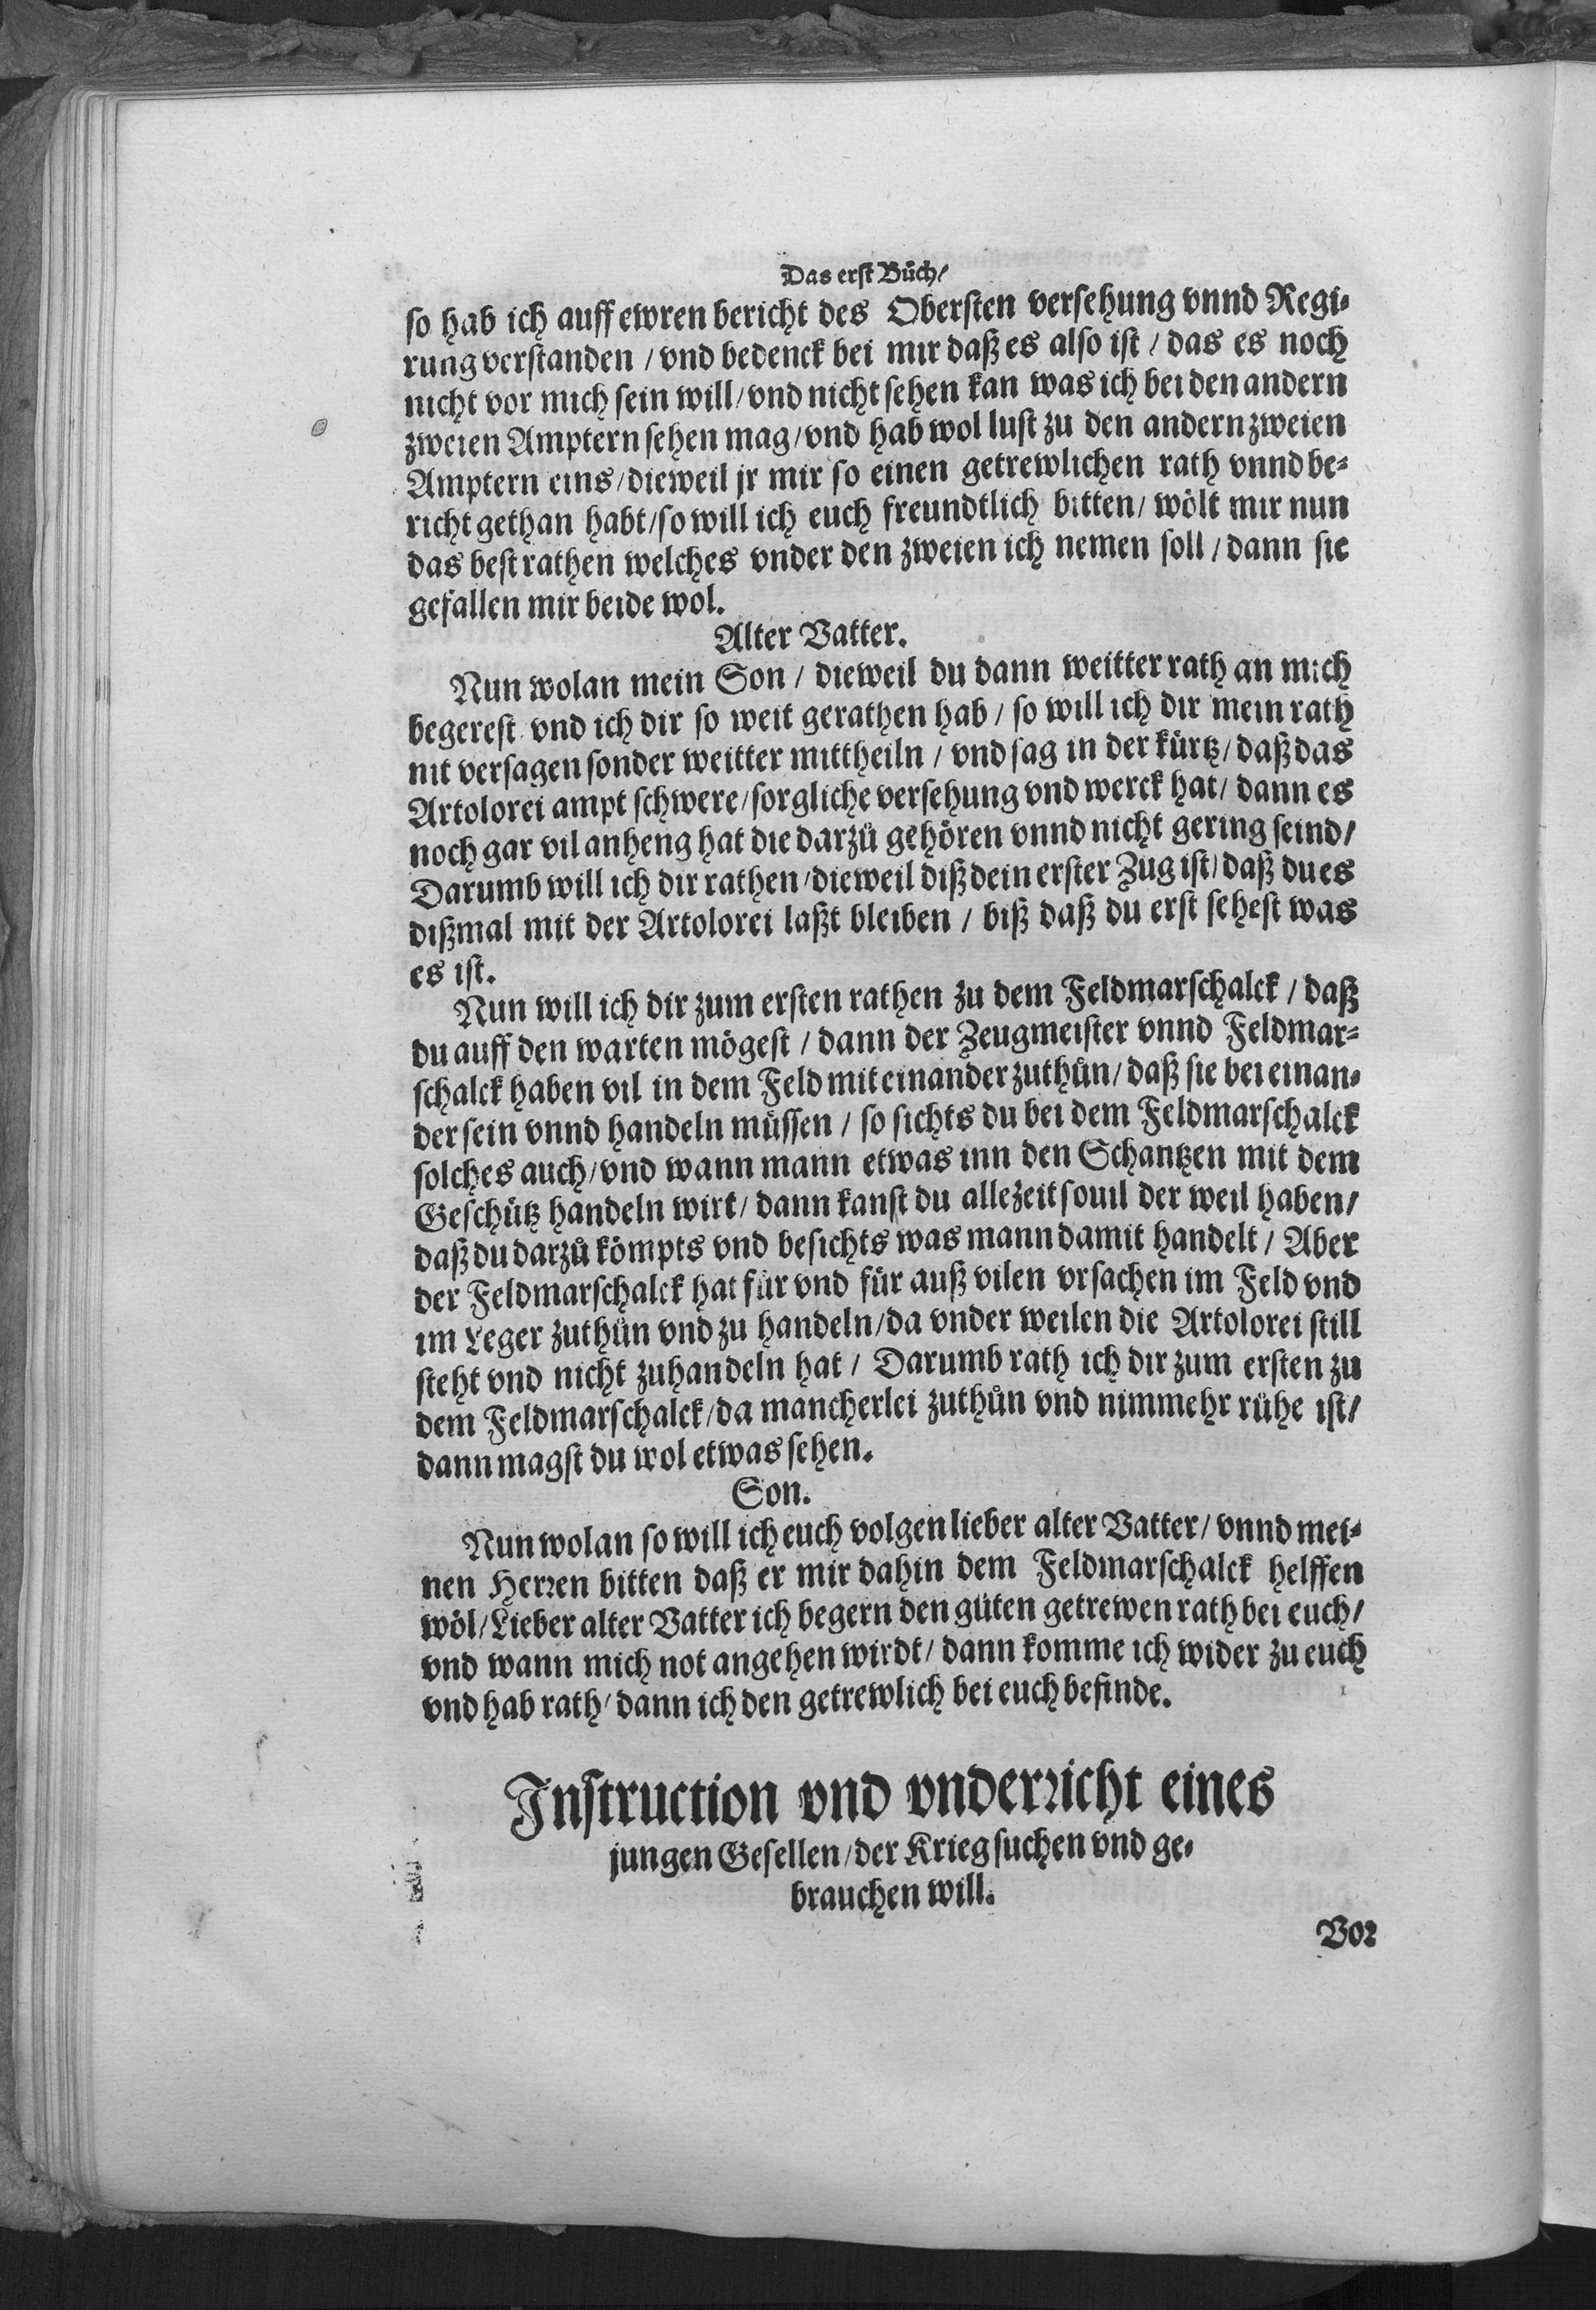 Das erst Bůch/
so hab ich auff ewren bericht des Obersten versehung vnnd Regi-
rung verstanden / vnd bedenck bei mir daß es also ist / das es noch
nicht vor mich sein will / vnd nicht sehen kan was ich bei den andern
zweien Amptern sehen mag / vnd hab wol lust zu den andern zweien
Amptern eins / dieweil jr mir so einen getrewlichen rath vnnd be-
richt gethan habt / so will ich euch freundtlich bitten / wölt mir nun
das best rathen welches vnder den zweien ich nemen soll / dann sie
gefallen mir beide wol.
Alter Vatter.
Nun wolan mein Son / dieweil du dann weitter rath an mich
begerest vnd ich dir so weit gerathen hab / so will ich dir mein rath
nit versagen sonder weitter mittheiln / vnd sag in der kürtz / daß das
Artolorei ampt schwere / sorgliche versehung vnd werck hat / dann es
noch gar vil anheng hat die darzů gehören vnnd nicht gering seind /
Darumb will ich dir rathen / dieweil diß dein erster Zug ist / daß du es
dißmal mit der Artolorei laßt bleiben / biß daß du erst sehest was
es ist.
Nun will ich dir zum ersten rathen zu dem Feldmarschalck / daß
du auff den warten mögest / dann der Zeugmeister vnnd Feldmar-
schalck haben vil in dem Feld mit einander zuthůn / daß sie bei einan-
der sein vnnd handeln müssen / so sichts du bei dem Feldmarschalck
solches auch / vnd wann mann etwas inn den Schantzen mit dem
Geschütz handeln wirt / dann kanst du allezeit souil der weil haben /
daß du darzů kömpts vnd besichts was mann damit handelt / Aber
der Feldmarschalck hat für vnd für auß vilen vrsachen im Feld vnd
im Leger zuthůn vnd zu handeln / da vnder weilen die Artolorei still
steht vnd nicht zuhandeln hat / Darumb rath ich dir zum ersten zu
dem Feldmarschalck / da mancherlei zuthůn vnd nimmehr růhe ist /
dann magst du wol etwas sehen.
Son.
Nun wolan so will ich euch volgen lieber alter Vatter / vnnd mei-
nen Herren bitten daß er mir dahin dem Feldmarschalck helffen
wöl / Lieber alter Vatter ich begern den gůten getrewen rath bei euch /
vnd wann mich not angehen wirdt / dann komme ich wider zu euch
vnd hab rath / dann ich den getrewlich bei euch befinde.
Instruction vnd vnderricht eines
jungen Gesellen / der Krieg suchen vnd ge-
brauchen will.
Vor